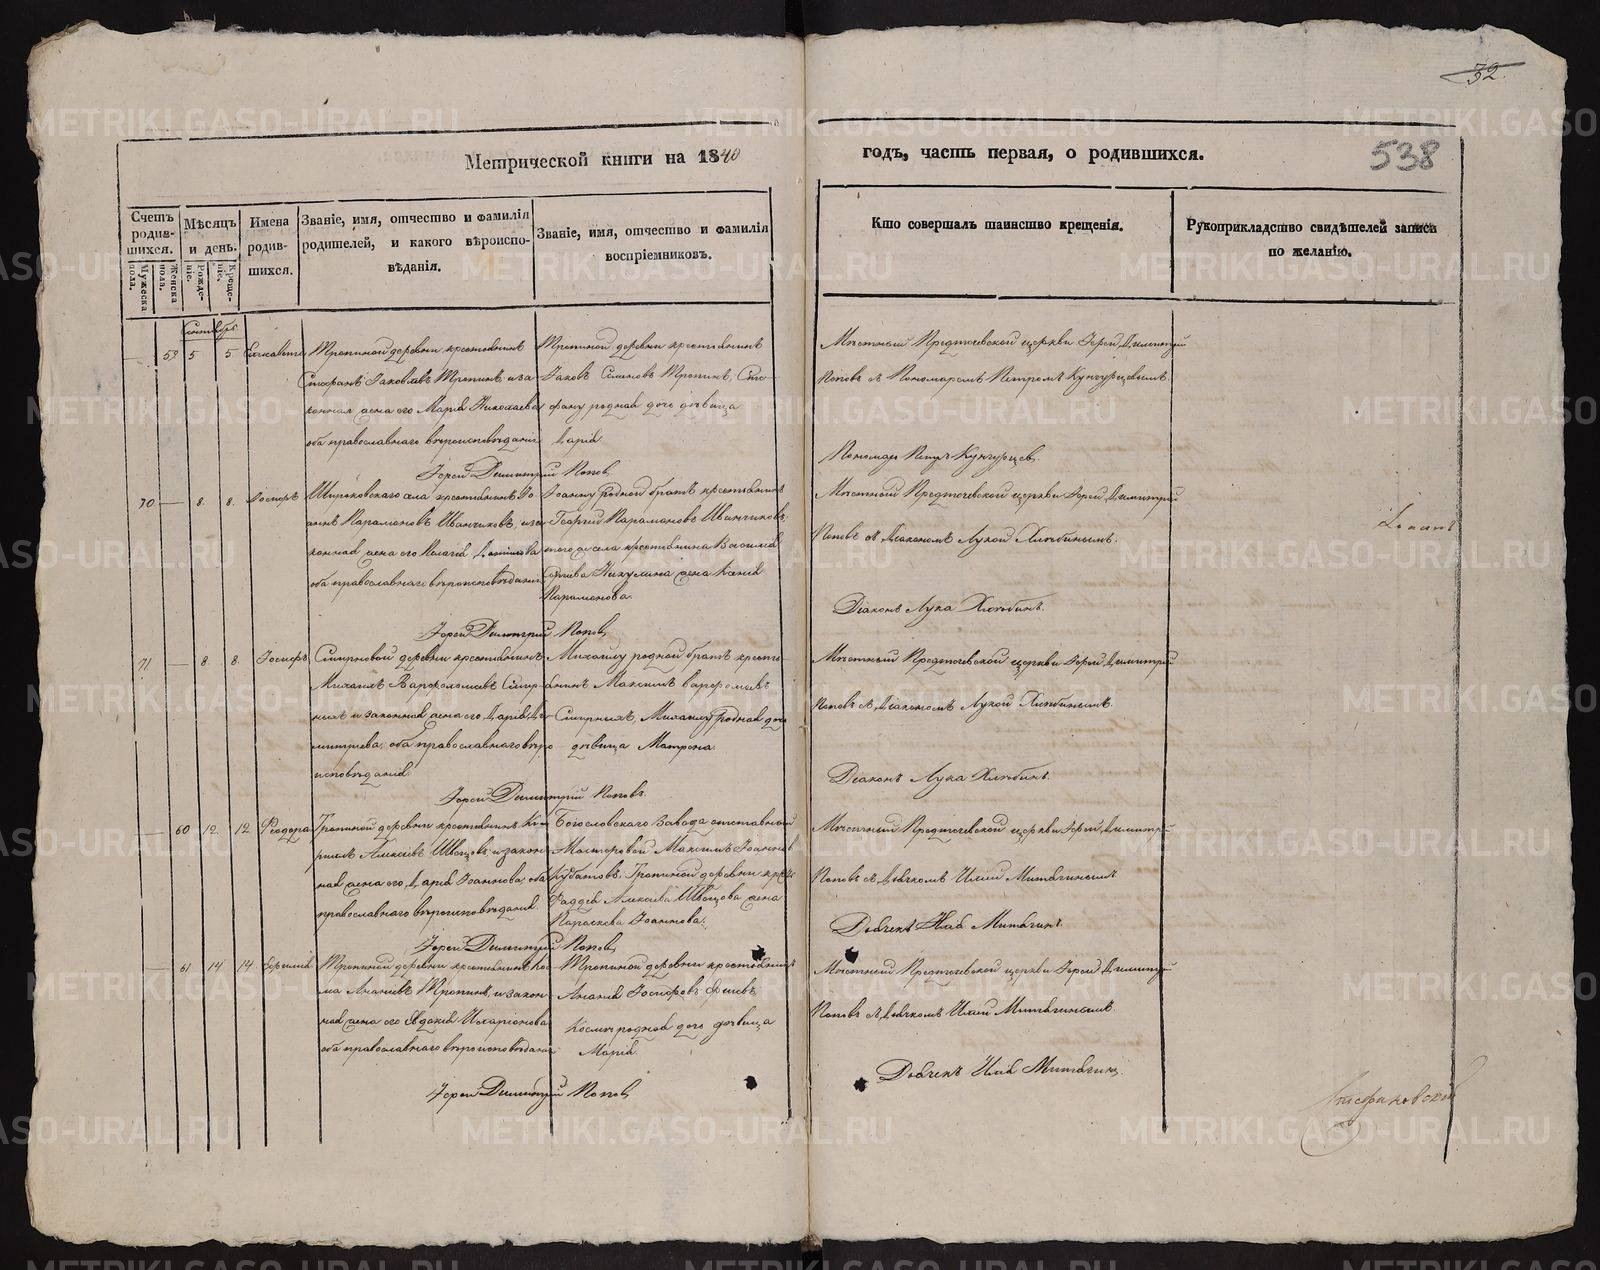 32.
538
Метрической книги на 1840
годъ, часть первая, о родившихся.
Счетъ родившихся.
Мужеска пола.
Женска пола.
Мѣсяцъ и день.
Рожденіе.
Крещеніе.
Имена родившихся.
Званіе, имя, отчество и фамилія
родителей, и какого вѣроиспо-
вѣданія.
Званіе, имя, отчество и фамилія
воспріемниковъ.
Кто совершалъ таинство крещенія.
Рукоприкладство свидѣтелей записи
по желанію.
Сентябрь
59 5 5 Елисавета
Тропиной деревни крестьянинъ
Стефанъ Іаковлевъ Тропинъ, и за-
конная жена его Марія Николаева
оба православнаго вѣроисповѣданія
Тропиной деревни крестьянинъ
Іаковъ Семеновъ Тропинъ, Сте-
фану родная дочь дѣвица
Дарія
Мѣстный Предтечевской церкви Іерей Димитрій
Поповъ съ Пономаремъ Петромъ Кунгурцевымъ.
Пономарь Петръ Кунгурцев.
Іерей Димитрій Попов
70 8. 8. Іосифъ
Широковскаго села крестьянинъ Іо-
аннъ Парамоновъ Иванчиковъ, и за-
конная жена его Пелагія Данилова
оба православнаго вѣроисповѣданія
Іоанну родной братъ крестьянинъ
Георгій Парамоновъ Иванчиковъ,
того же села крестьянина Василія
Никулина жена Ксенія
Парамонова.
Мѣстный Предтечевской церкви Іерей Димитрій
Поповъ съ Діакономъ Лукой Хлѣбинымъ.
Діаконъ Лука Хлѣбинъ.
Іерей Димитрій Попов
71 8. 8. Іосифъ
Смирновой деревни крестьянинъ
Михаилъ Варфоломеевъ Смир-
ныхъ и законная жена его Дарія Ди-
митріева, оба православнаго вѣро-
исповѣданія.
Михаилу родной братъ крестья-
нинъ Максимъ Варфоломеевъ
Смирныхъ, Михаилу родная дочь
дѣвица Матрона.
Мѣстный Предтечевской церкви Іерей Димитрій
Поповъ съ Діакономъ Лукой Хлѣбинымъ.
Діаконъ Лука Хлѣбинъ.
Іерей Димитрій Поповъ.
60 12. 12 Феодора
Тропиной деревни крестьянинъ Ки-
риллъ Алексѣевъ Швецовъ, и закон-
ная жена его Дарія Іоаннова, оба
православнаго вѣроисповѣданія.
Богословскаго Завода отставный
Мастеровой Максимъ Іоанновъ
Тропиной деревни
Фаддея Алексѣева Швецова жена
Параскева Іоаннова.
Мѣстный Предтечевской церкви Іерей Димитрій
Поповъ съ Дьячкомъ Иліей Митягинымъ
Дьячекъ Илія Митягинъ
Іерей Димитрій Попов
61 14 14 Евфимія
Тропиной деревни крестьянинъ Кос-
ма Ананіевъ Тропинъ, и закон-
ная жена его Евдокія Иларіонова
оба православнаго вѣроисповѣданія
Тропиной деревни крестьянинъ
Ананія Іосифовъ
Космы родная дочь дѣвица
Марія.
Мѣстный Предтечевской церкви Іерей Димитрій
Поповъ съ Дьячкомъ Иліей Митягинымъ.
Дьячекъ Илія Митягин.
Іерей Димитрій Попов
METRIKI.GASO-URAL.RU